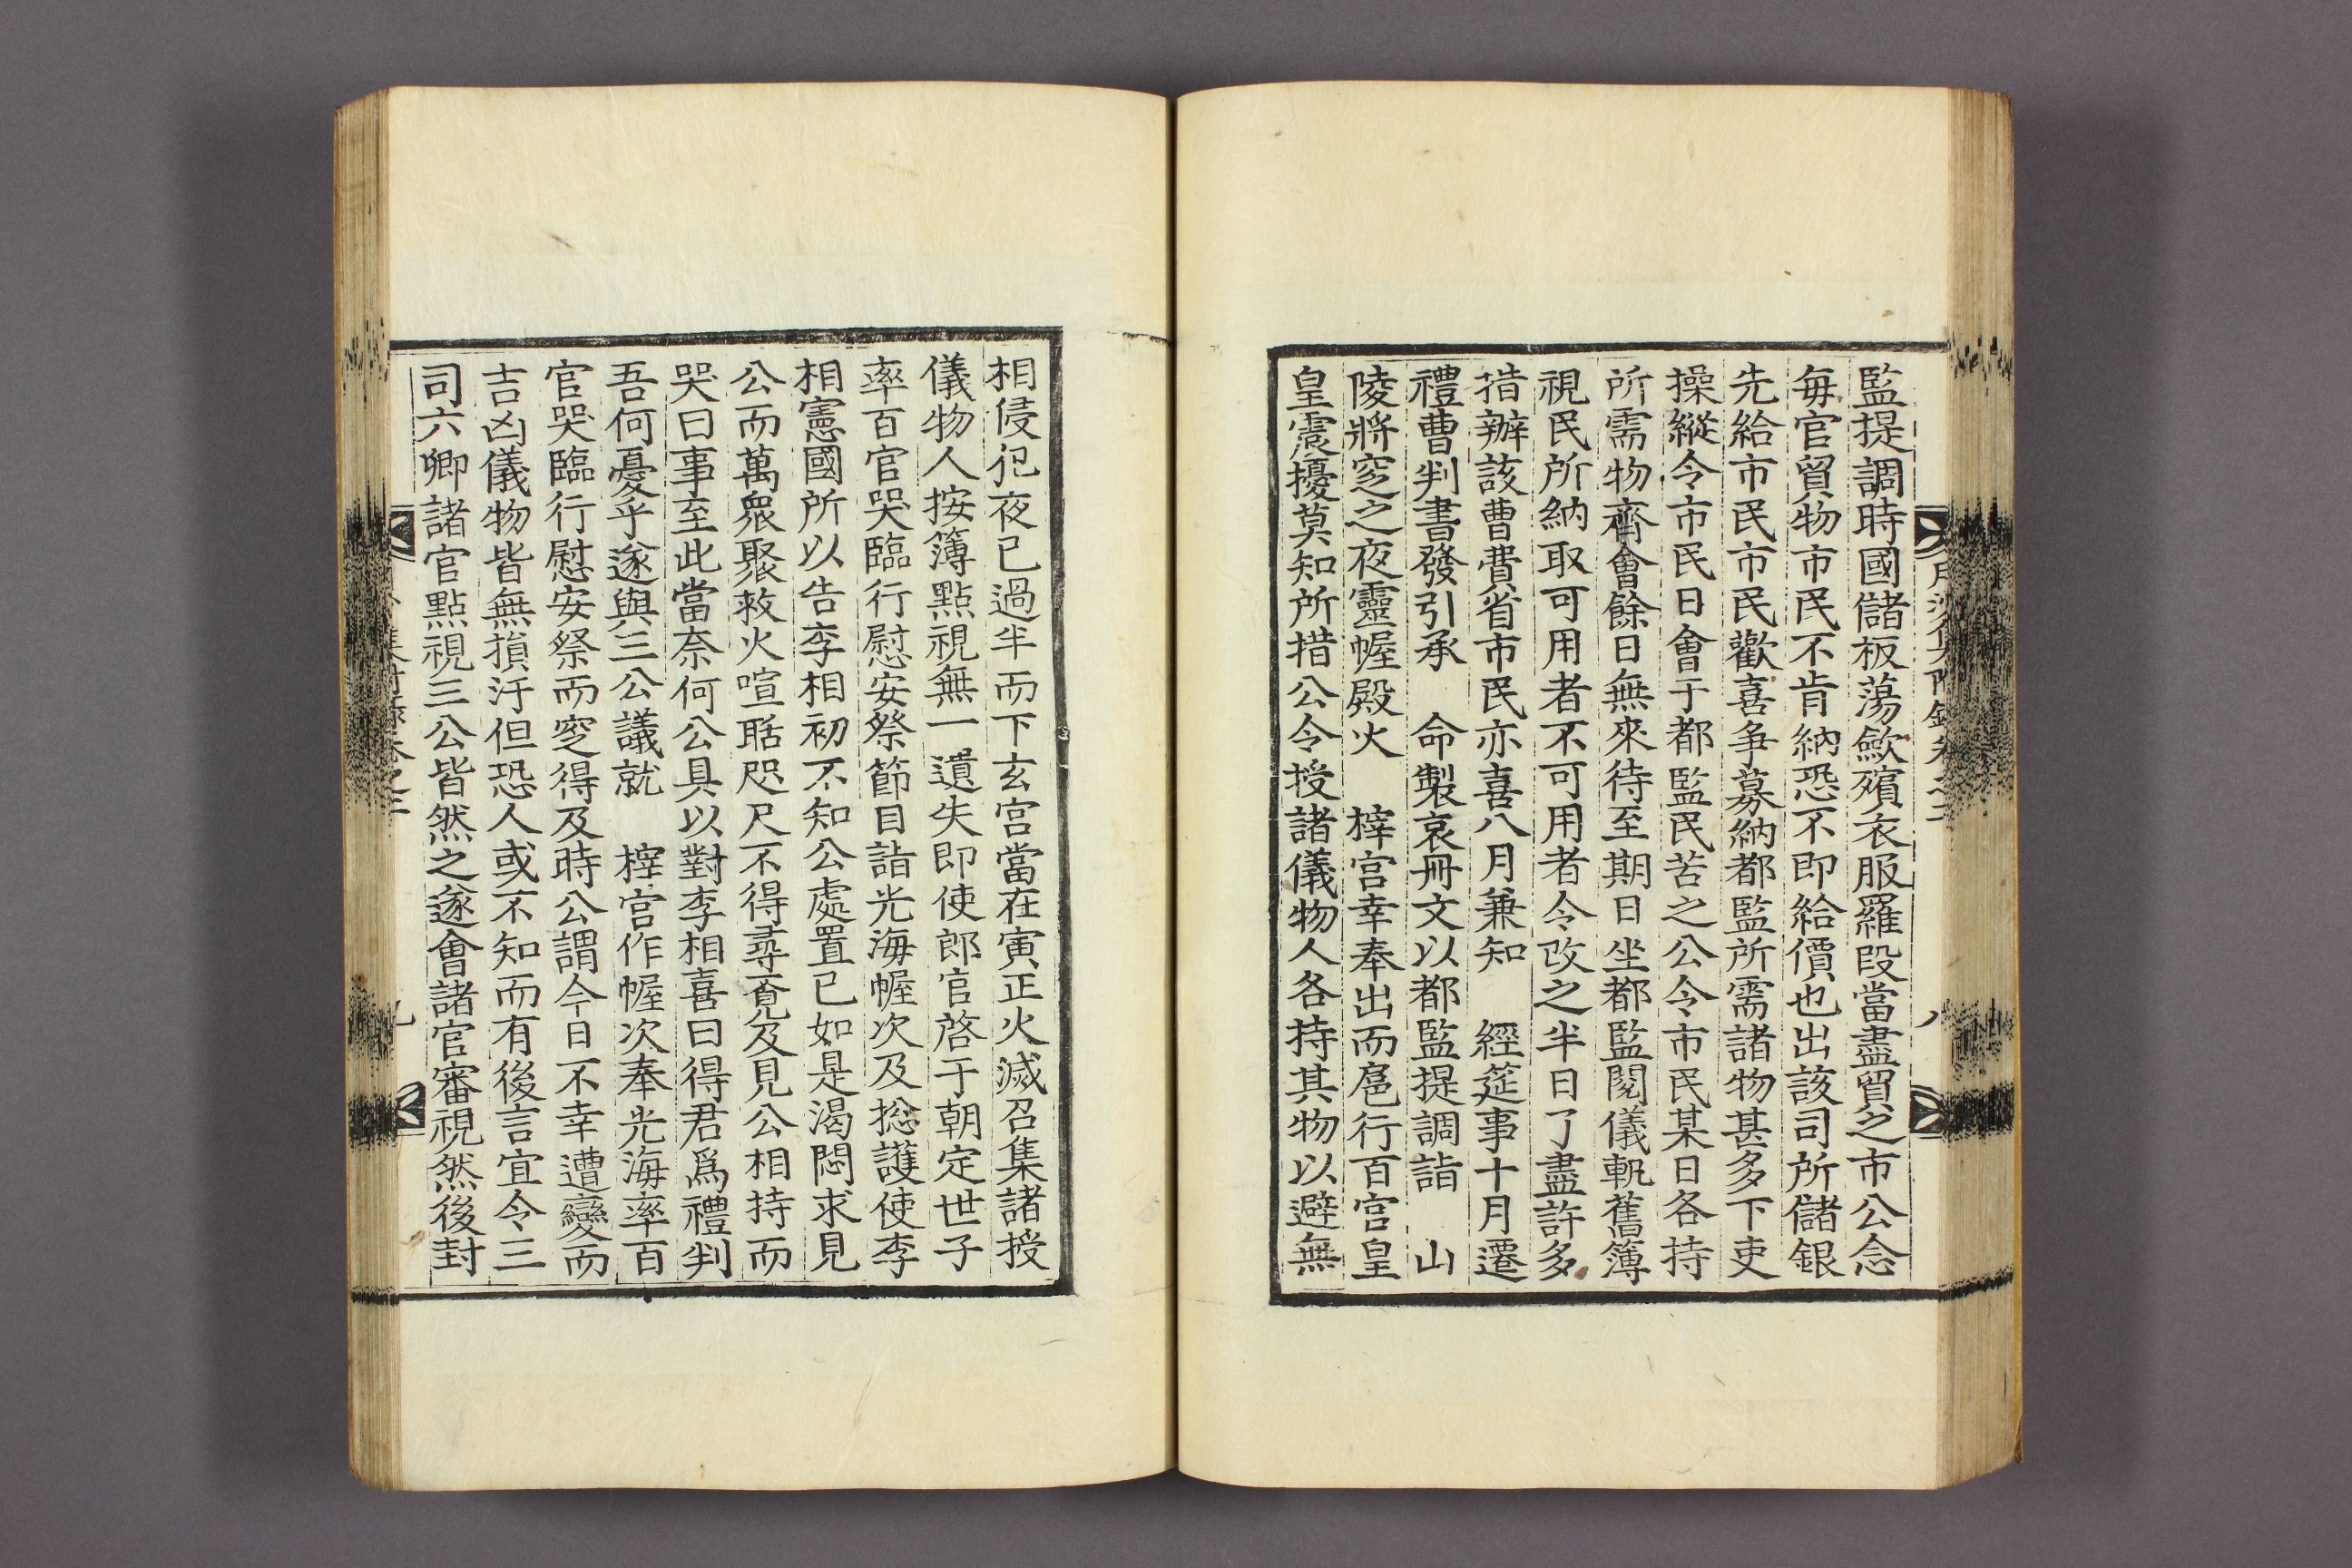 監提調時國儲板蕩歛殯衣服羅段當盡貿之市公念
每官貿物市民不肯納恐不即給價也出該司所儲銀
先給市民市民歡喜爭募納都監所需諸物甚多下吏
操縱令市民日會于都監民苦之公令市民某日各持
所需物齊會餘日無來待至期日坐都監閱儀軌舊簿
視民所納取可用者不可用者令改之半日了盡許多
措辦該曹費省市民亦喜八月兼知　經筵事十月遷
禮曹判書發引承　命製哀冊文以都監提調詣　山
陵將窆之夜靈幄殿火　梓宮幸奉出而扈行百官皇
皇震擾莫知所措公令授諸儀物人各持其物以避無
相侵犯夜已過半而下玄宮當在寅正火滅召集諸授
儀物人按簿點視無一遺失即使郎官啓于朝定世子
率百官哭臨行慰安祭節目詣光海幄次及摠護使李
相憲國所以告李相初不知公處置已如是渴悶求見
公而萬衆聚救火喧聒咫尺不得尋覓及見公相持而
哭曰事至此當奈何公具以對李相喜曰得君爲禮判
吾何憂乎遂與三公議就　梓宮作幄次奉光海率百
官哭臨行慰安祭而窆得及時公謂今日不幸遭變而
吉凶儀物皆無損汙但恐人或不知而有後言宜令三
司六卿諸官點視三公皆然之遂會諸官審視然後封